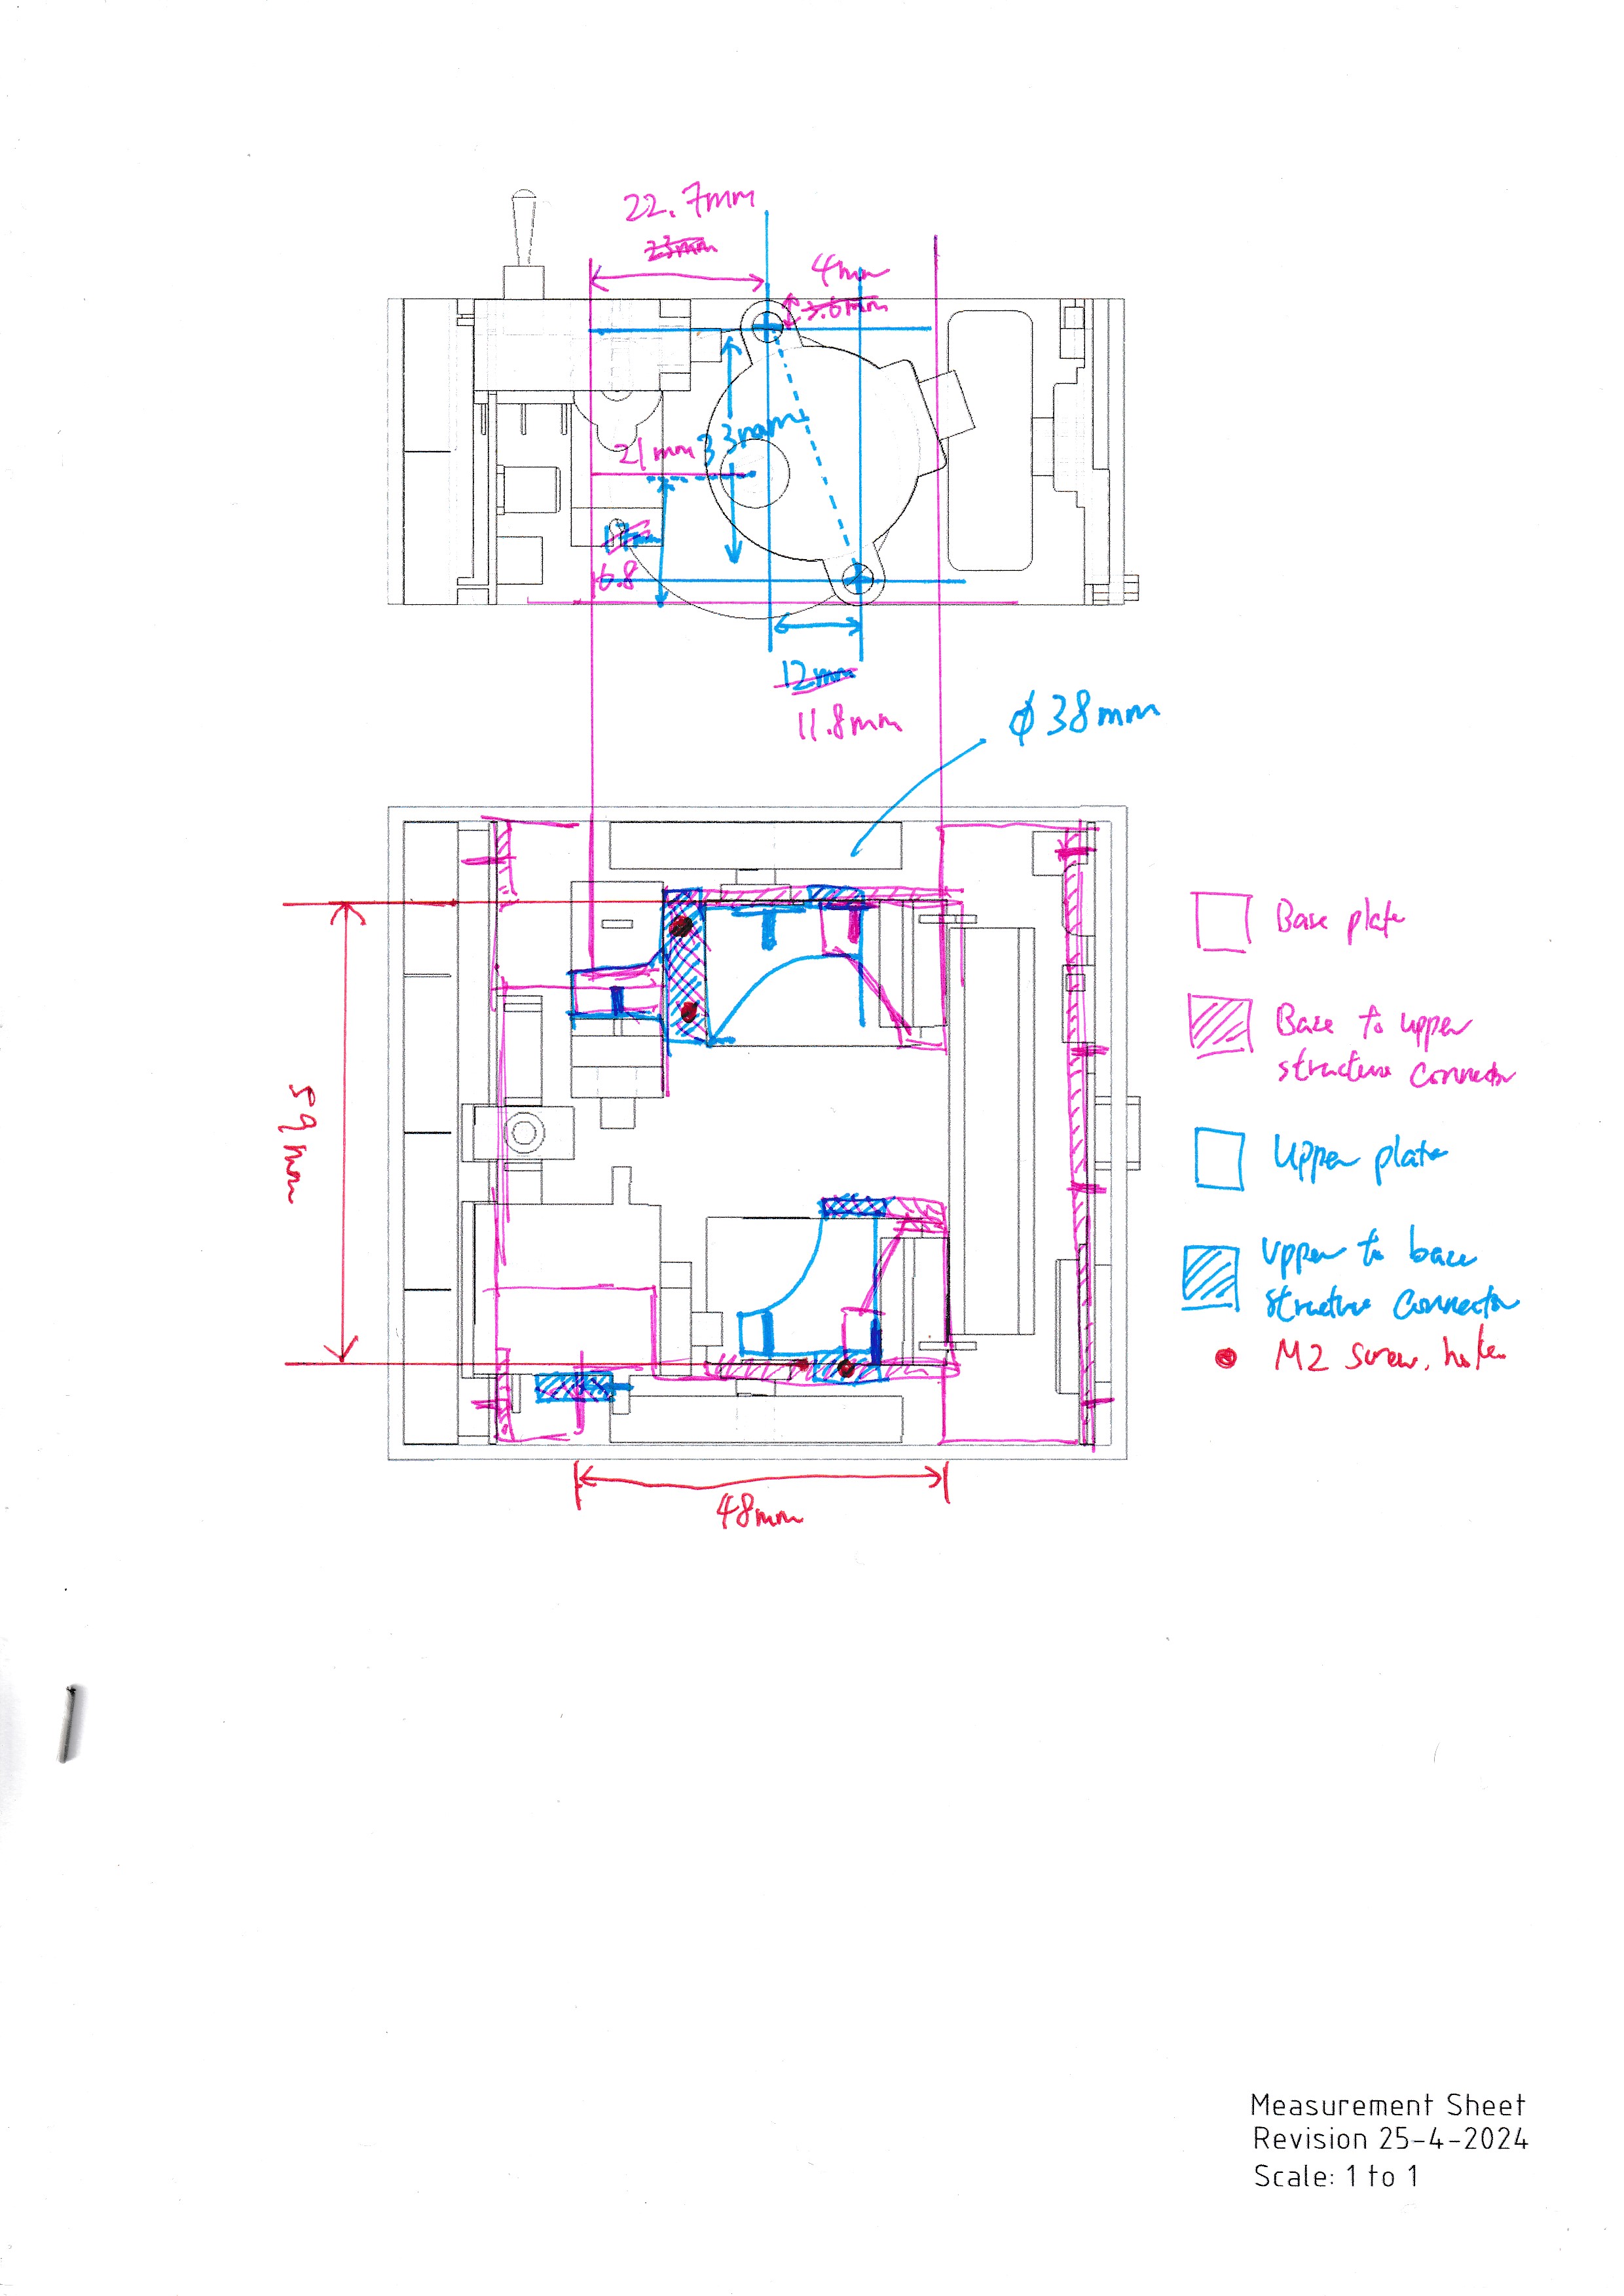 22.7mm
23mm
4mm
3.6mm
21mm
33mm
16.8
12mm
11.8mm
ϕ38mm
59mm
48mm
Base plate
Base to upper
structure connector
Upper plate
Upper to base
structure connector
M2 screw holes
Measurement Sheet
Revision 25-4-2024
Scale: 1 to 1